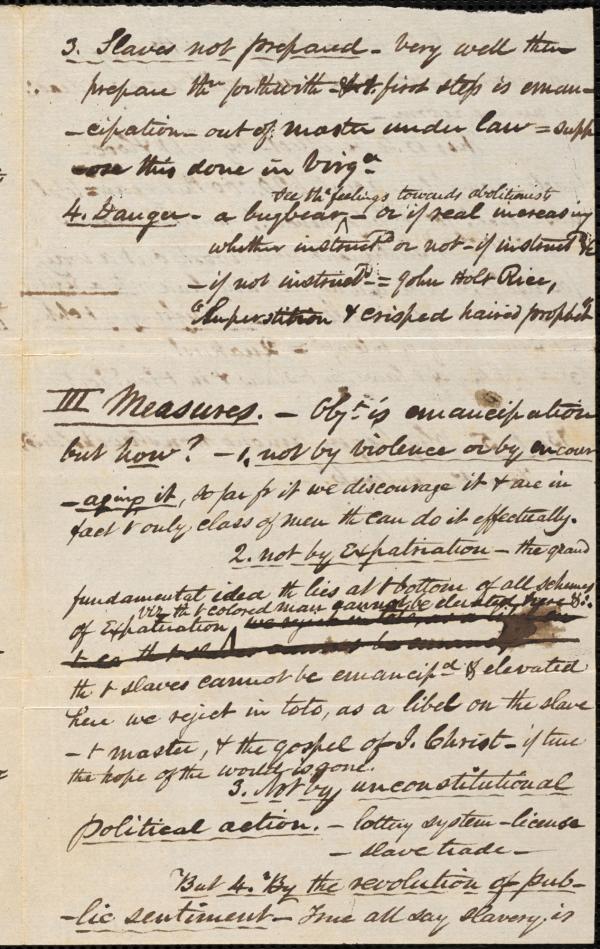 3. Slaves not prepared - Very well then
prepare thm forthwith - first step is eman-
-cipation - out of master under law = supp
-ose this done in Virga
see the feelings towards abolitionist
4. Danger - a bugbear - or if real increasing
whether instructd or not - if instructd &c
- if not instructd = John Holt Rice,
"Superstition & crisped haired prophet"
III Measures. - Objt is emancipation
but how? - 1. not by violence or by encour
-aging it, so far fr it we discourage it & are in
fact t only class of men th can do it effectually.
2. not by Expatriation - the grand
fundamental idea th lies at t bottom of all schemes
viz, th t colored man cannot be elevated here &c.
of Expatriation, we reject in toto, as a
t slaves cannot be
th t slaves cannot be emancipd & elevated
here we reject in toto, as a libel on the slave
- t master, & the gospel of J. Christ - if true
the hope of the world is gone.
3. Not by unconstitutional
political action. - lottery system - license
- slave trade -
But 4. "By the revolution of pub-
-lic sentiment - True all say slavery is